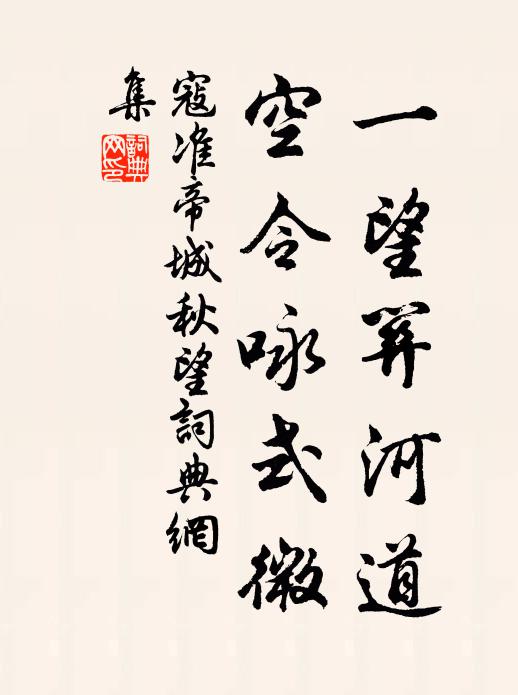 一望關河道
空令咏式微
寇准帝城秋望詞典網
集
詞典
网印